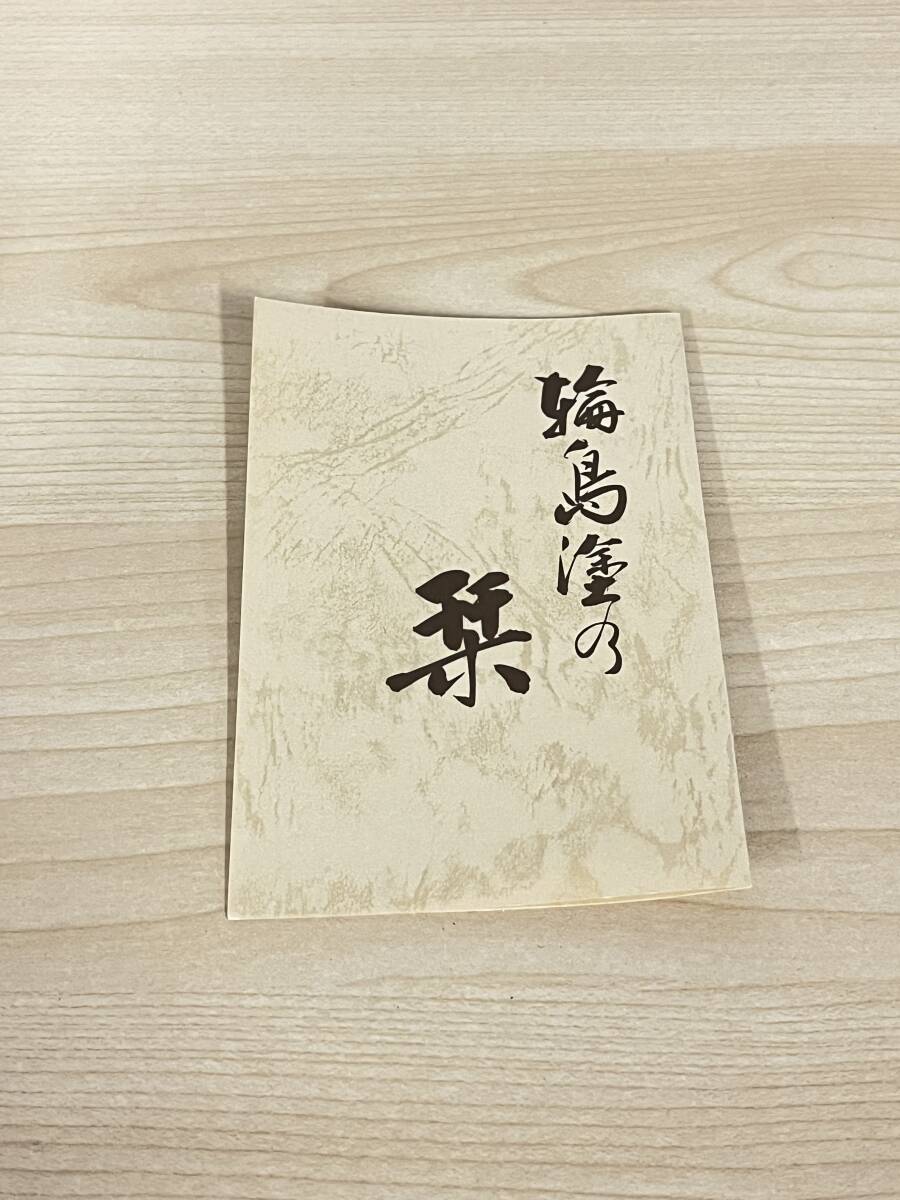 輪島塗の
栞